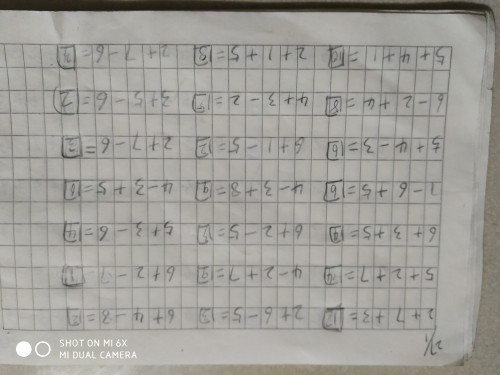 2+7+3=12 2+6-5=3 6+4-8=2
5+2+7=14 4-2+7=9 6+2-7=1
6+3+5=14 6+2-5=3 5+3-6=2
7-6+5=6 4-3+8=9 4-3+5=6
5+4-3=6 6+1-5=2 2+7-6=3
6-2+4=8 4+3-2=5 3+5-6=2
5+4+1=10 2+1+5=8 2+7-6=3
SHOT ON MI 6X
MI DUAL CAMERA